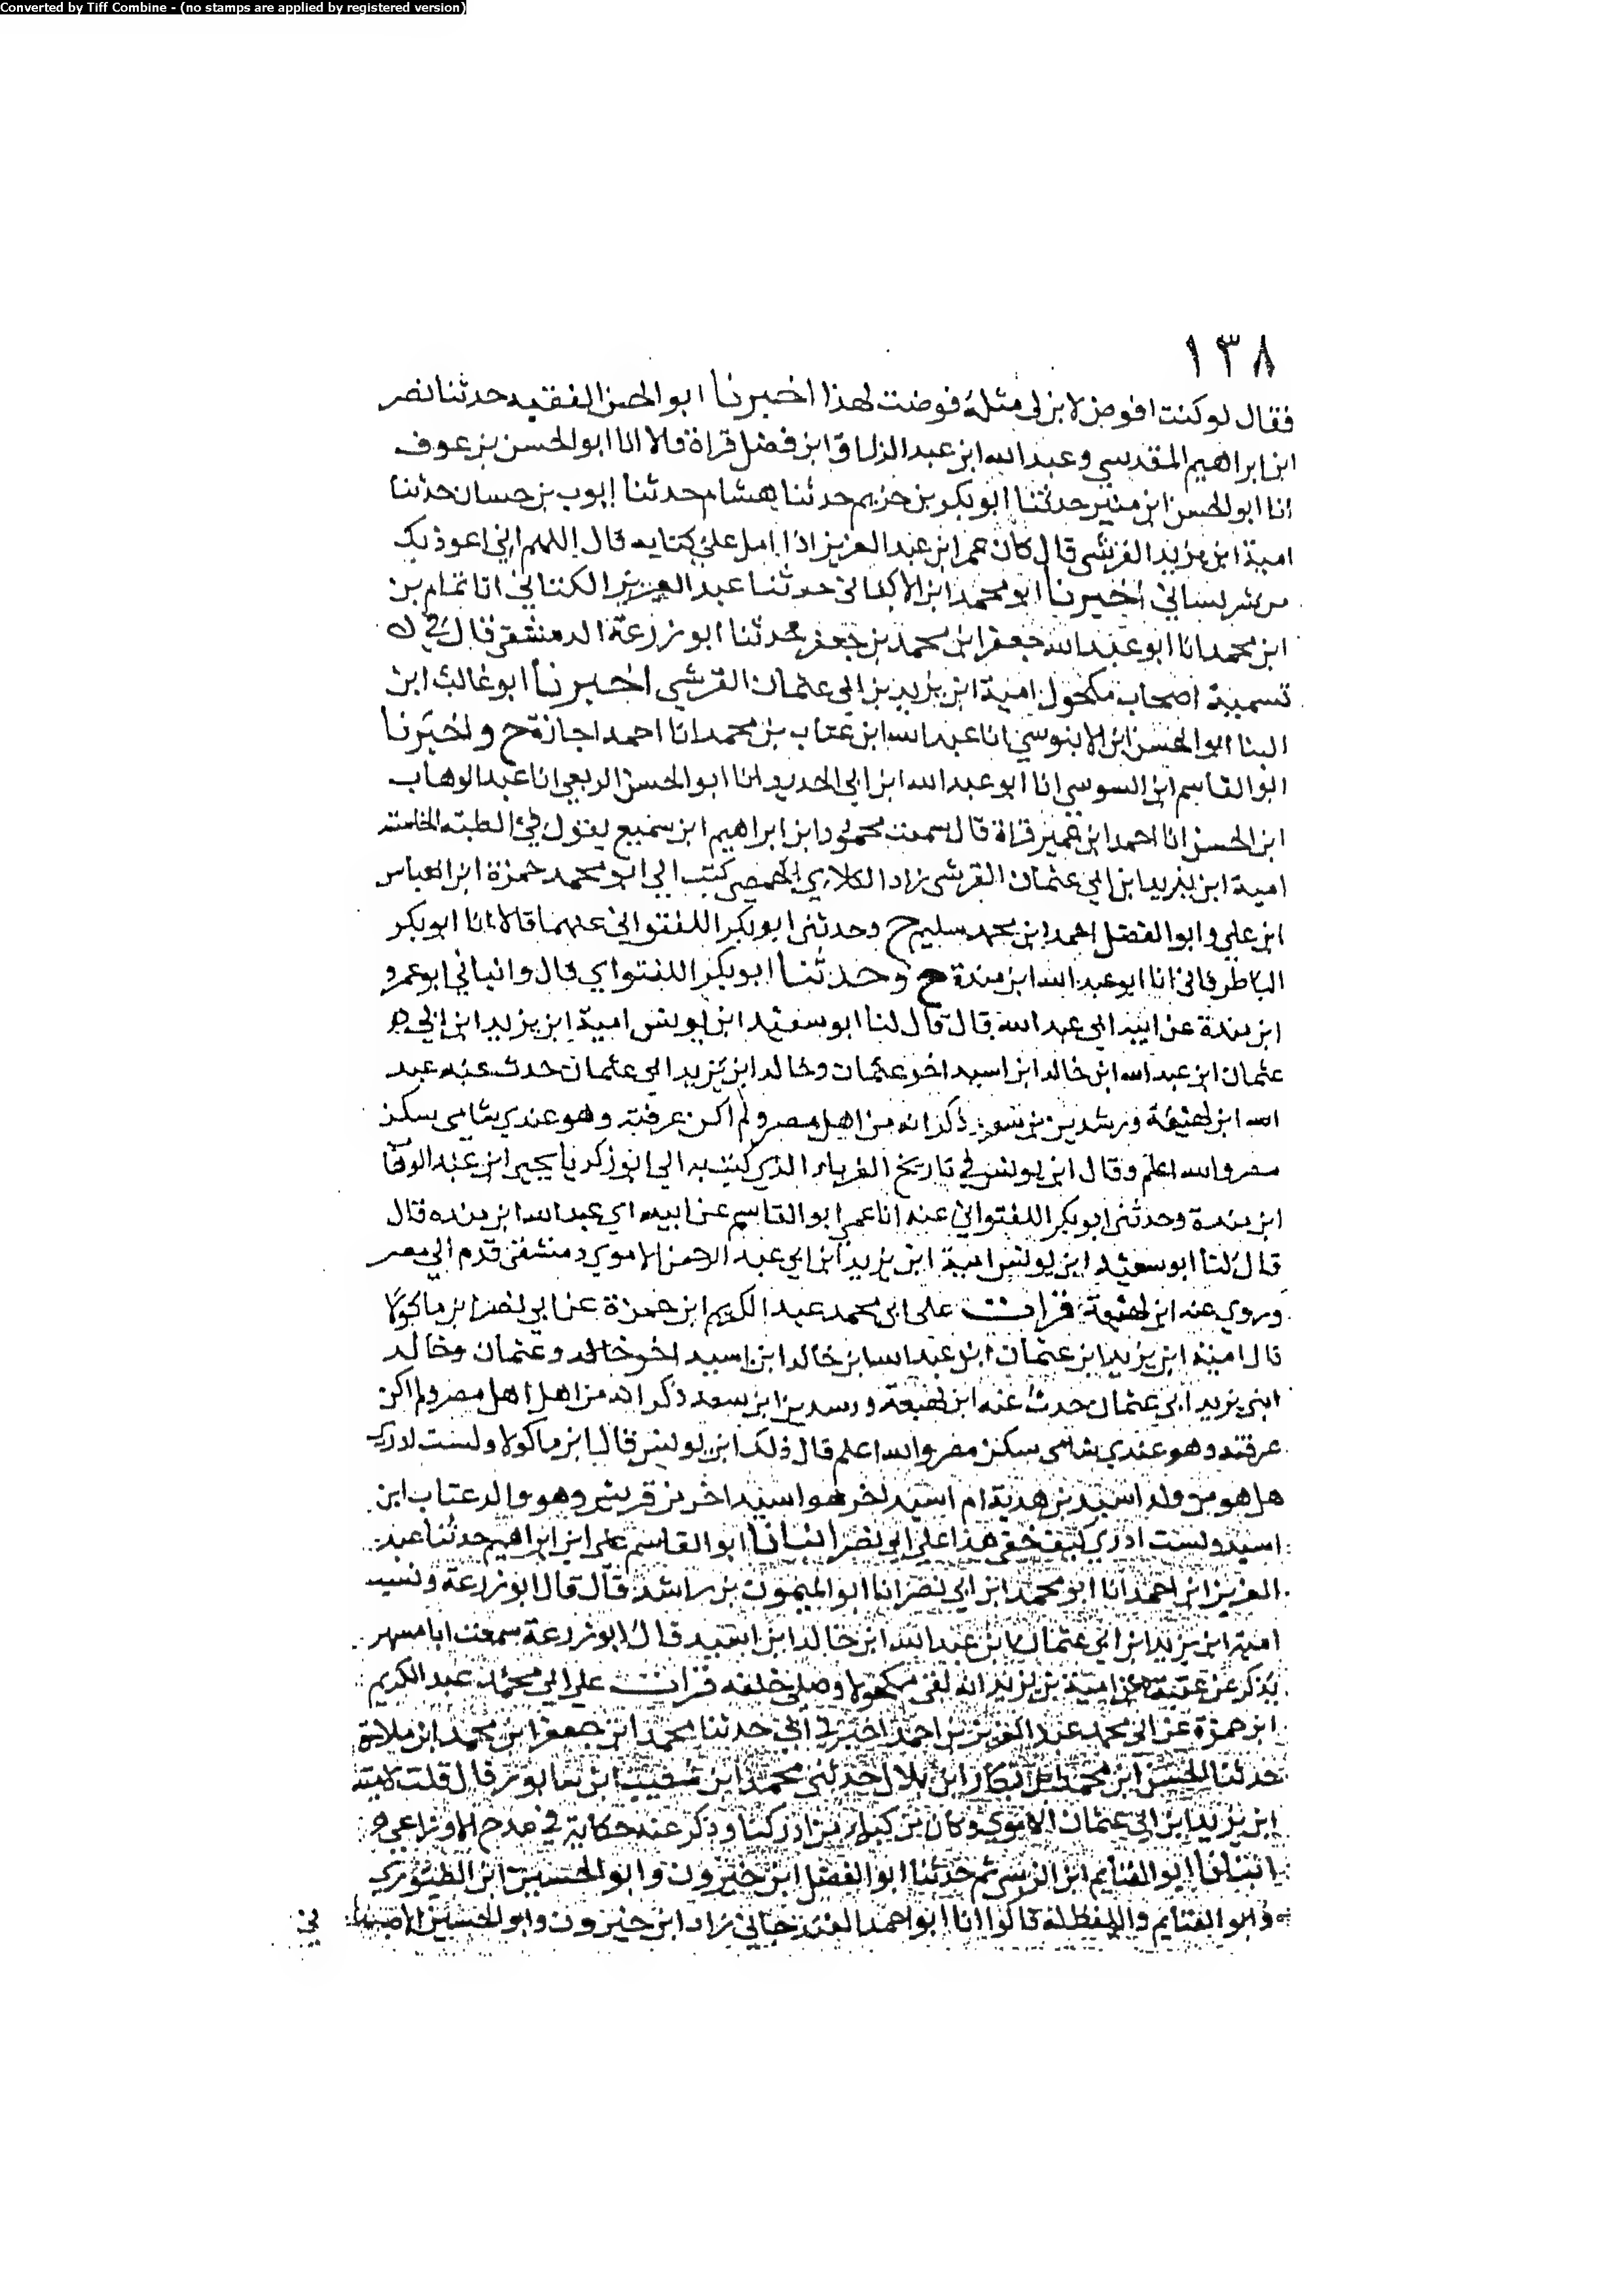 Converted by Tiff Combine - (no stamps are applied by registered version)
١٣٨
فقال لو كنت افوض لابن لي مثله فوضت لهذا اخبرنا ابو الحسن الفقيه حدثنا نصر
ابن ابراهيم المقدسي وعبد الله ابن عبد الرزاق ابن فضل قراة قالا انا ابو الحسن بن عوف
انا ابو الحسن ابن منير حدثنا ابو بكر بن خزيم حدثنا هشام حدثنا ايوب بن حسان حدثنا
امية ابن يزيد القرشي قال كان عمر ابن عبد العزيز اذا امل علي كتابه قال اللهم اني اعوذ بك
من شر لساني اخبرنا ابو محمد ابن الاكفاني حدثنا عبد العزيز الكتاني انا تمام بن
ابن محمد انا ابو عبد الله جعفر ابن محمد بن جعفر حدثنا ابو زرعة الدمشقي قال في
تسمية اصحاب مكحول امية ابن يزيد بن ابي عثمان القرشي اخبرنا ابو غالب ابن
البنا ابو الحسن ابن الابنوسي انا عبد الله ابن عتاب بن محمد انا احمد اجازة ح واخبرنا
ابو القاسم ابن السوسي انا ابو عبد الله ابن ابي الحديد انا ابو الحسن الربعي انا عبد الوهاب
ابن الحسن انا احمد ابن عمير قراة قال سمعت محمود ابن ابراهيم ابن سميع يقول في الطبقة الخامسة
امية ابن يزيد ابن ابي عثمان القرشي زاد الكلابي الحمصي كتب الي ابو محمد حمزة ابن العباس
ابن علي وابو الفضل احمد ابن محمد سليم ح وحدثني ابو بكر اللفتواني عنهما قالا انا ابو بكر
الباطرقاني انا ابو عبد الله ابن مندة ح وحدثنا ابو بكر اللفتواي قال وانباني ابو عمرو
ابن مندة عن ابيه ابي عبد الله قال قال لنا ابو سعيد ابن يونس امية ابن يزيد ابن ابي
عثمان ابن عبد الله ابن خالد ابن اسيد اخو عثمان وخالد ابن يزيد ابي عثمان حدث عنه عبد
الله ابن لهيعة ورشدين بن سعد ذكر انه من اهل مصر ولم اكن عرفته وهو عندي شامي سكن
مصر والله اعلم وقال ابن يونس في تاريخ الغرباء الذي كتب به الي ابو زكريا يحيى ابن عبد الوهاب
ابن مندة وحدثني ابو بكر اللفتواني عنه انا عمر ابو القاسم عن ابيه اي عبد الله ابن منده قال
قال لنا ابو سعيد ابن يونس امية ابن يزيد ابن ابي عبد الرحمن الاموي دمشقي قدم الي مصر
وروي عنه ابن لهيعة قرات على ابي محمد عبد الكريم ابن حمزة عن ابي نصر ابن ماكولا
قال امية ابن يزيد ابن عثمان ابن عبد الله ابن خالد ابن اسيد اخو خالد وعثمان وخالد
ابني يزيد ابي عثمان حدث عنه ابن لهيعة ورسدين ابن سعد ذكر انه من اهل اهل مصر ولم اكن
عرفته وهو عندي شامي سكن مصر والله اعلم قال ذلك ابن يونس قال ابن ماكولا ولست ادري
هل هو من ولد اسيد بن هدية ام اسيد اخر هو اسيد اخر من قريش وهو والد عتاب ابن
اسيد ولست ادري كيف خفي هذا علي ابي نصر انبانا ابو القاسم علي ابن ابراهيم حدثنا عبد
العزيز ابن احمد انا ابو محمد ابن ابي نصر انا ابو الميمون بن راشد قال قال ابو زرعة ونسيب
امية ابن يزيد ابن ابي عثمان ابن عبد الله ابن خالد ابن اسيد قال ابو زرعة سمعت ابا مسهر
يذكر عن عتبة عن امية بن يزيد انه لقي مكحولا وصلي خلفه قرات علي ابي محمد عبد الكريم
ابن حمزة عن ابي محمد عبد العزيز بن احمد اخبرني ابي حدثنا محمد ابن جعفر ابن محمد ابن ملاس
حدثنا الحسن ابن محمد ابن بكار ابن بلال حدثني محمد ابن شعيب ابن شابور قال قلت لامية
ابن يزيد ابن ابي عثمان الاموي وكان من كبار من ادركنا وذكر عنه حكاية في مدح الاوزاعي
انبانا ابو الغنايم ابن النرسي ثم حدثنا ابو الفضل ابن خيرون وابو الحسين ابن الطيوري
وابو الغنايم واللفظ له قالوا انا ابو احمد الغندجاني زاد ابن خيرون وابو الحسين الاصبهاني